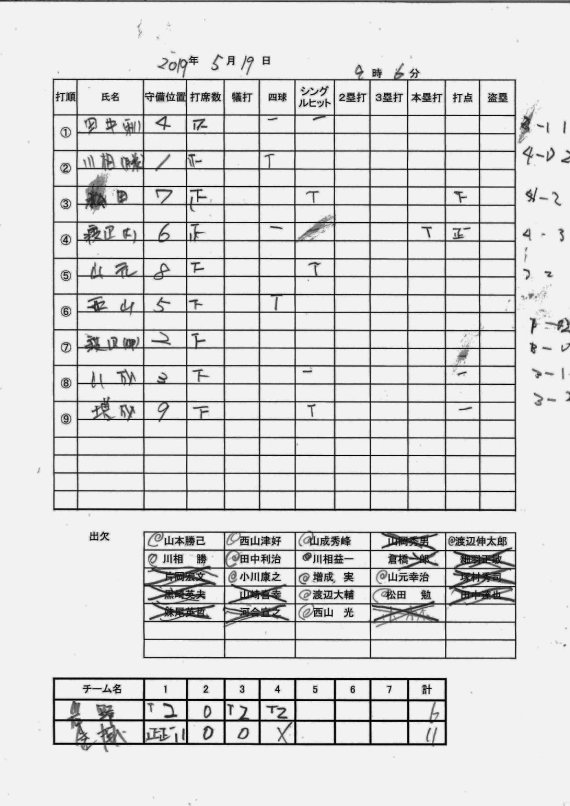 2019年 5月 19日
4時 6分
打順 氏名 守備位置 打席数 犠打 四球 シングルヒット 2塁打 3塁打 本塁打 打点 盗塁
① 4 正 一 一
② 川相 1 正 T
③ 松田 7 正 T 下
④ 渡辺 6 正 一 T 正
⑤ 山元 8 下 T
⑥ 西山 5 下 T
⑦ 2 下
⑧ 山成 3 下 一 一
⑨ 増成 9 下 T 一
4-3
出欠
山本勝己 西山津好 山成秀峰 山岡秀男 渡辺伸太郎
川相 勝 田中利治 川相益一 倉橋一郎
片岡宏文 小川康之 増成 実 山元幸治 塚村秀司
黒崎英夫 山崎喜幸 渡辺大輔 松田 勉 田中達也
河合直之 西山 光
チーム名 1 2 3 4 5 6 7 計
T2 0 T2 T2 6
正正11 0 0 X 11